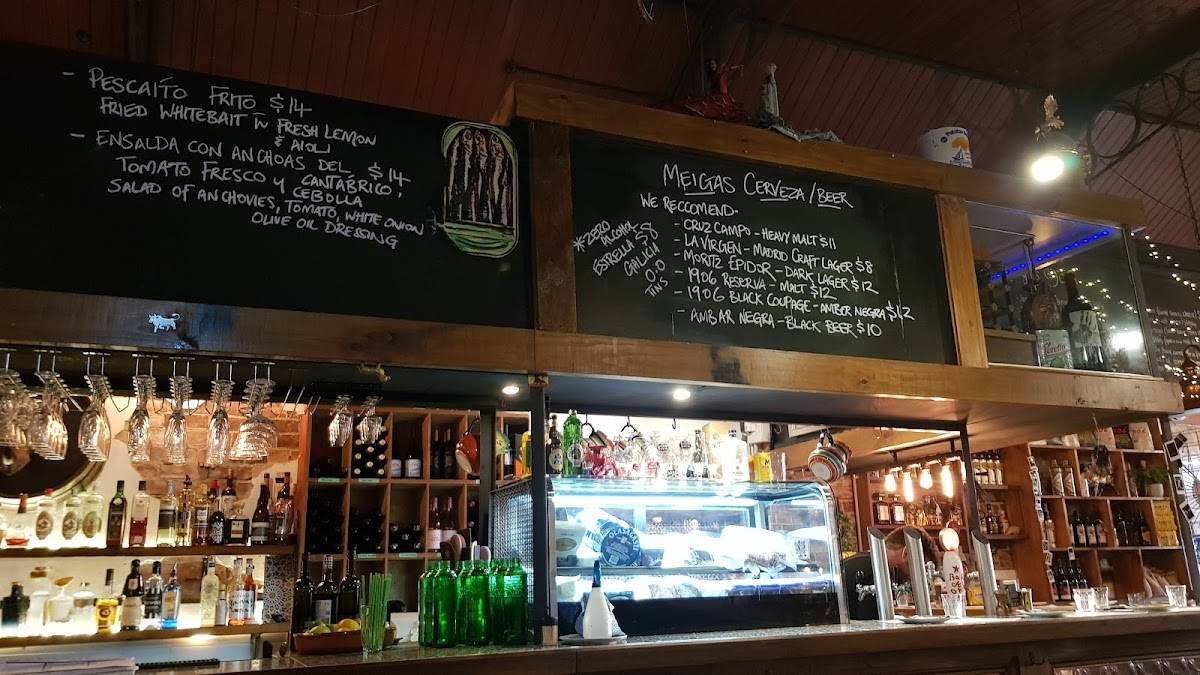 - PESCAÍTO FRITO $14
FRIED WHITEBAIT W FRESH LEMON
& AIOLI
- ENSALDA CON ANCHOAS DEL $14
CANTÁBRICO,
TOMATO FRESCO Y CEBOLLA
SALAD OF ANCHOVIES, TOMATO, WHITE ONION
OLIVE OIL DRESSING
MEIGAS CERVEZA/BEER
WE RECCOMEND-
- CRUZ CAMPO - HEAVY MALT $11
- LA VIRGEN - MADRID CRAFT LAGER $8
- MORITZ EPIDOR - DARK LAGER $12
- 1906 RESERVA - MALT $12
- 1906 BLACK COUPAGE - AMBER NEGRA $12
- AMBAR NEGRA - BLACK BEER $10
*ZERO
ALCOHOL
ESTRELLA $8
GALICIA
0.0
TINS